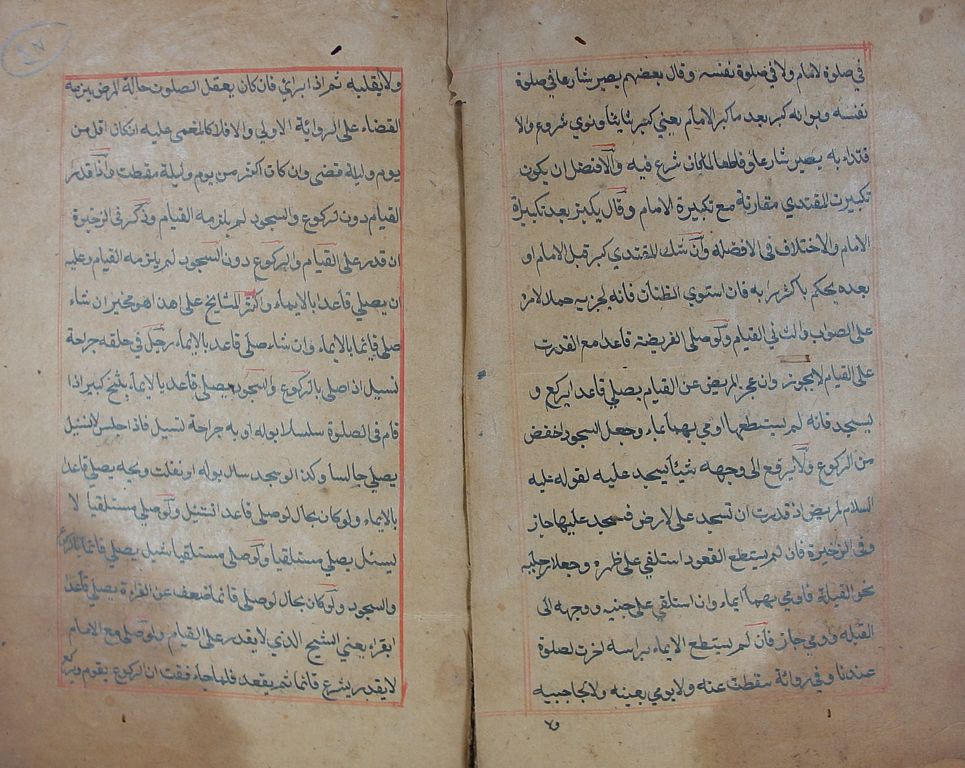 في صلوة الامام ولا في صلوة نفسه وقال بعضهم يصير شارعا في صلوة
نفسه وبو انه كبر بعد ما كبر الامام يعني كبر ثانيا ونوي شروع والا
قتداء به يصير شارعا وقاطعا لما كان شرع فيه والافضل ان يكون
تكبيرت المقتدي مقارنة مع تكبيرة الامام وقال يكبر بعد تكبيرة
الامام والاختلاف في الافضله وان شك المقتدي كبر قبل الامام او
بعده يحكم باكثر رايه فان استوي الظنان فانه يجزيه حملا لامر
على الصواب والثاني القيام ولو صلى الفريضة قاعدا مع القدرت
على القيام لايجوز وان عجز المريض عن القيام يصلي قاعدا يركع و
يسجد فانه لم يستطعها اومي بهما ايماء وجعل السجود اخفض
من الركوع ولا يرفع الى وجهه شيئا يسجد عليه لقوله عليه
السلام لمريض اذ قدرت ان تسجد على لارض فسجد عليها جاز
وفي الزخيرة فان لم يستطع القعود استلقي على ظهره وجعلا رجليه
نحو القبلة فاومي بهما ايماء وان استلقي على جنبه ووجهه الى
القبله ودمي جاز فان لم يستطع الايماء براسه اخرت لصلوة
عندنا وفي رواية سقطت عنه ولا يومي بعينه ولا بحاجبيه
ولا بقلبه ثم اذا ابرائ فان كان يعقل الصلوت حالة المرض يزمه
القضاء على الروائة الاولي والا فلا كالمغمى عليه انكان اقل من
يوم وليلة قضى وان كان اكثر من يوم وليلة سقطت واذا قدر
القيام دون لركوع والسجود لم يلزمه القيام وذكر في الزخيرة
ان قدر على القيام والركوع دون السجود لم يلزمه القيام وعليه
ان يصلي قاعدا بالايماء واكثر المشايخ على اهذا هو مخير ان شاء
صلى قائما بالايماء وان شاء صلى قاعد بالايماء رجل في حلقه جراحة
تسيل اذ اصلي بالركوع والسجود يصلي قاعدا بالايماء شيخ كبير اذا
قام في الصلوة سلسلا بوله او به جراحة تسيل فاذا جلس لا تسيل
يصلي جالسا وكذ الو سجد سال بوله او نفلت ريحه يصلي قاعدا
بالايماء ولو كان بحال لو صلى قاعدا تسيل ولو صلى مستلقيا لا
يسيل يصلي مستلقيا ولو صلى مستلقيا سيل يصلي قائما بالركوع
والسجود ولو كان بحال لو صلى قائما ضعف عن القراءة يصلي قاعدا
بقراء يعني الشيخ الذي لا يقدر على القيام ولو صلى مع الامام
لايقدر يشرع قائما ثم يقعد فلما جاء وقت الركوع يقوم ويركع